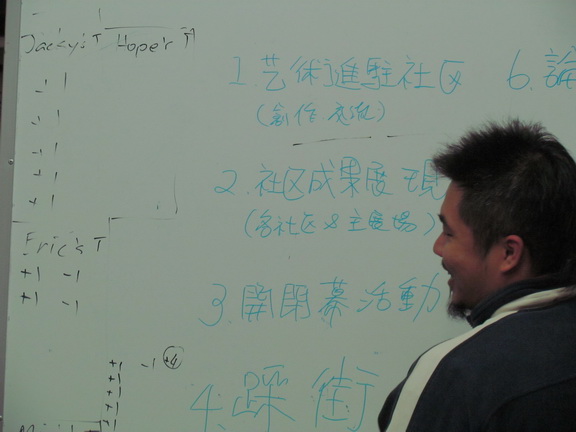 Jacky's T Hoper's T
-1 1
-1 1
-1 1
-1 1
+1 1
Eric's T
+1 -1
+1 -1
+1 -1 +4
+1
+1
+1
+1
1. 艺術進駐社区
(創作.交流)
2. 社区成果展現
(各社区&主展場)
3. 開閉幕活動
4. 踩街
6. 論